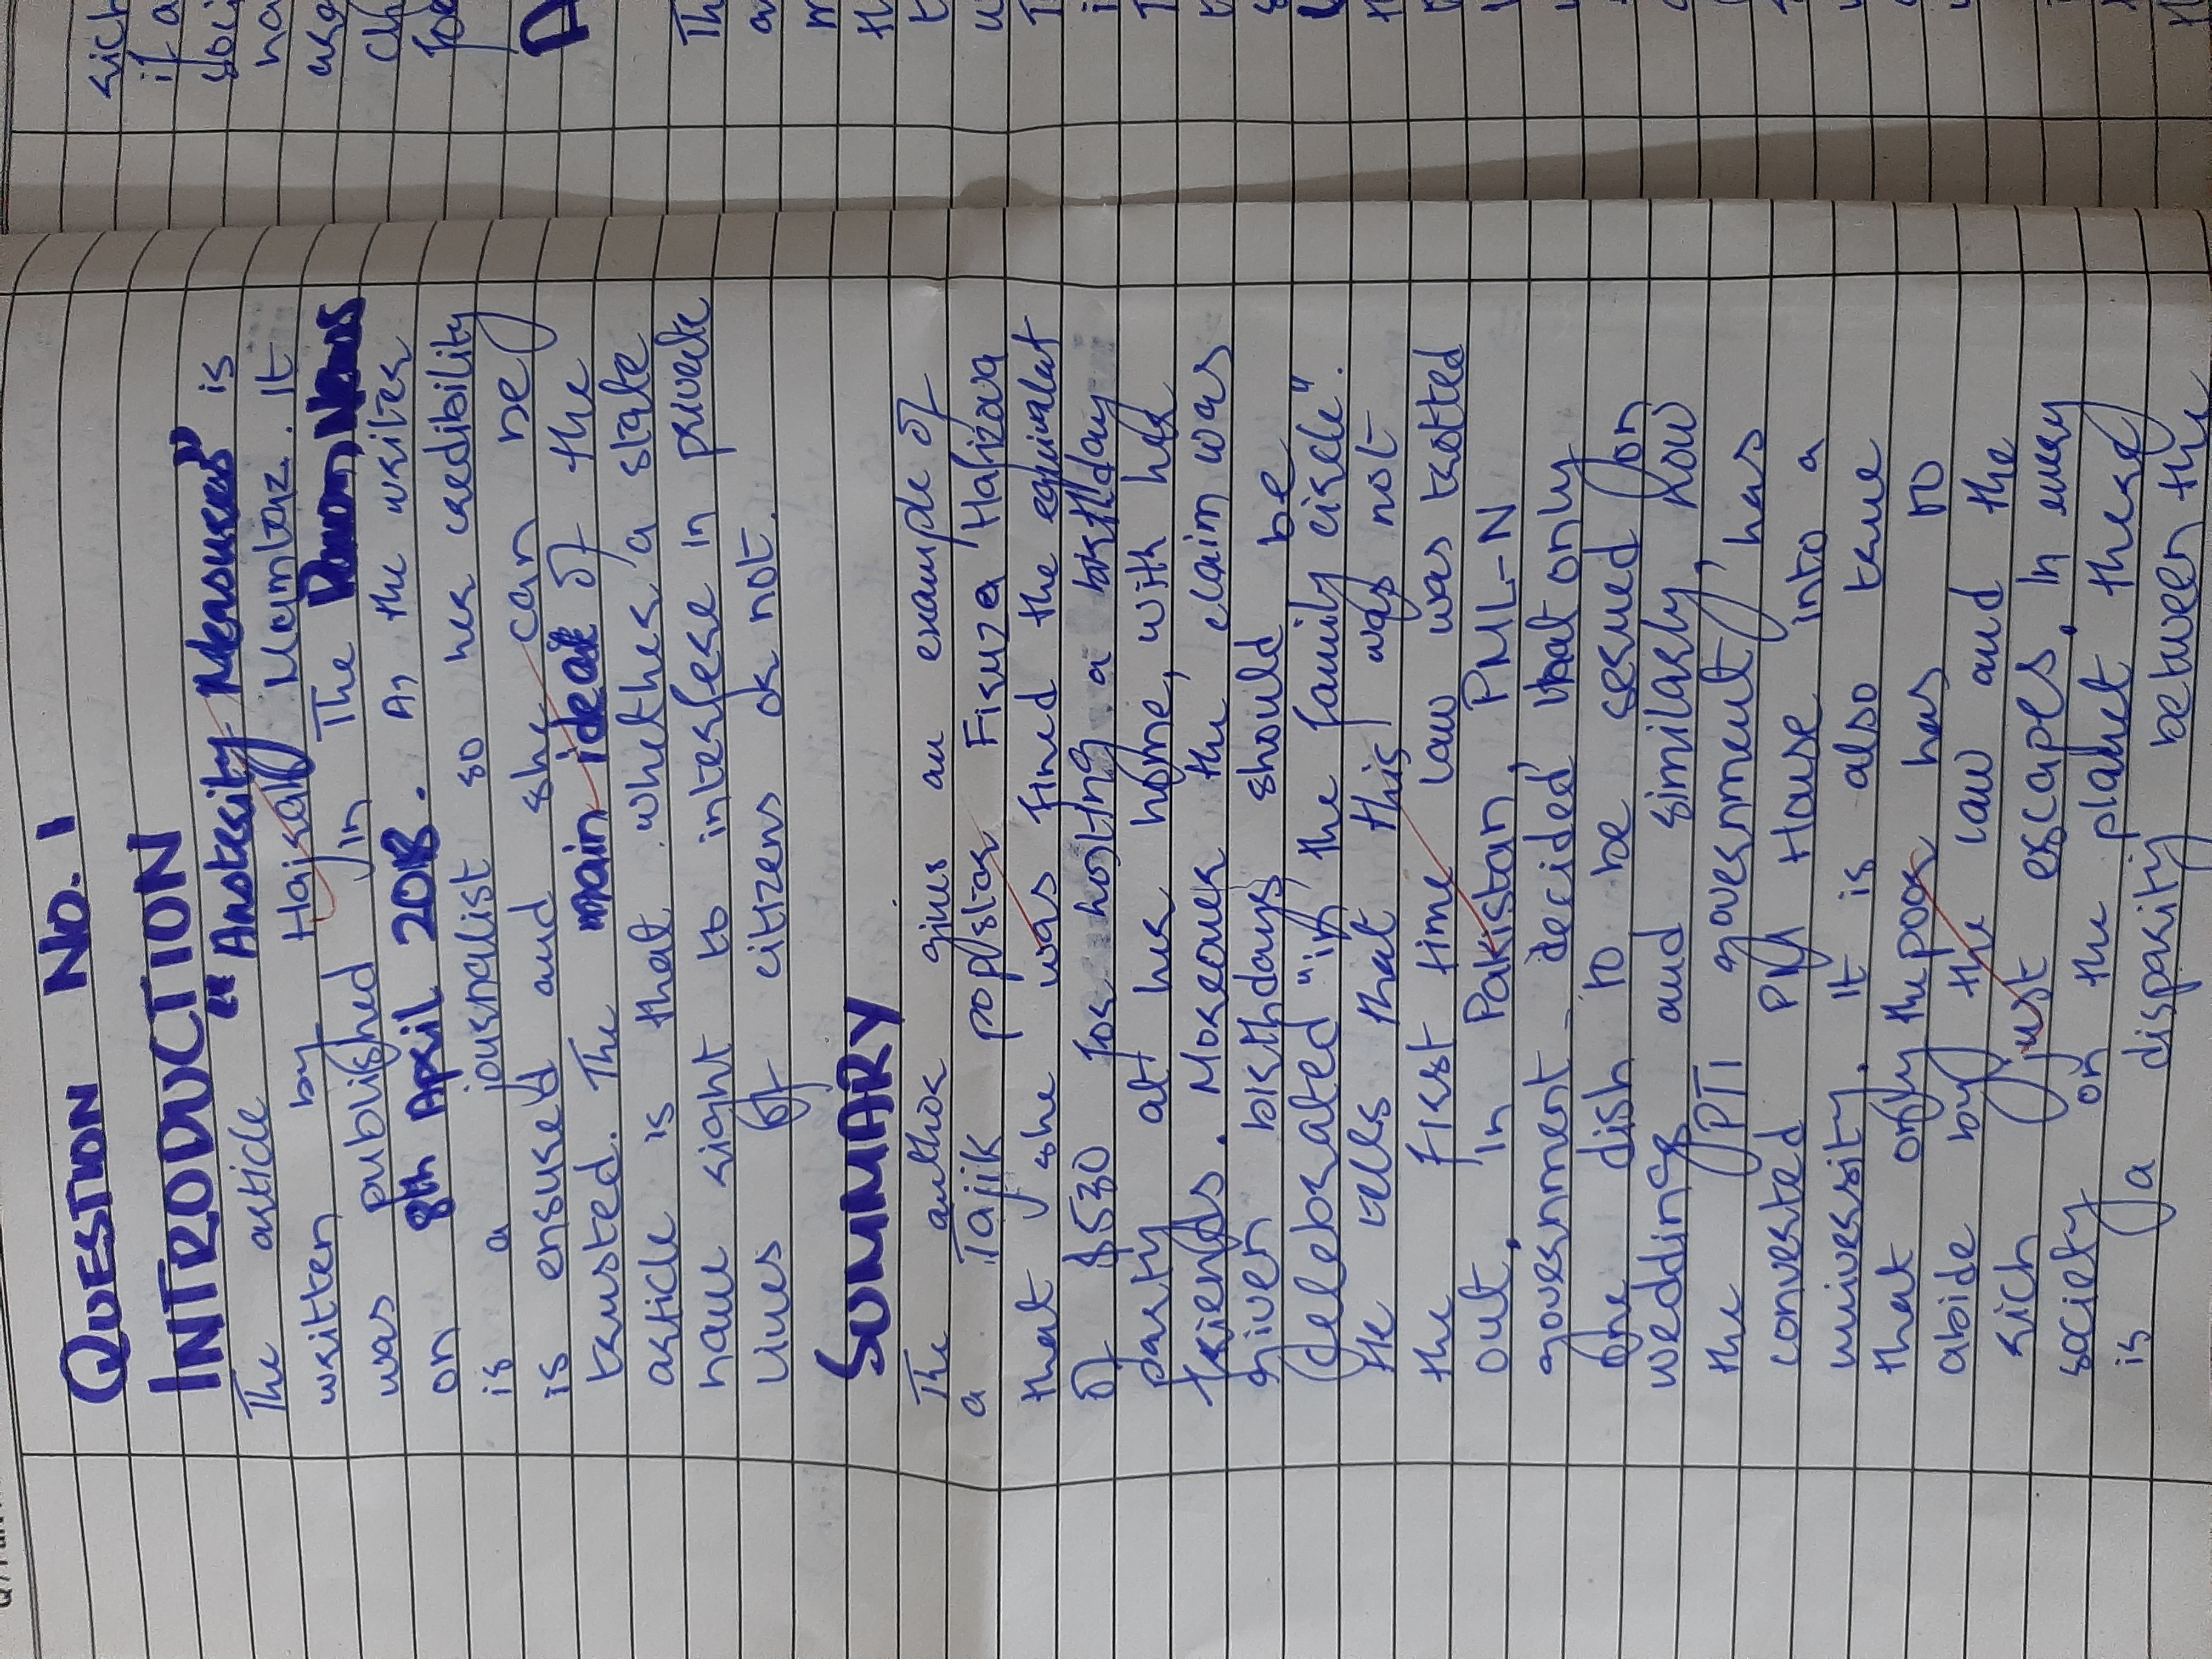 QUESTION NO. 1
INTRODUCTION
The article "Austerity Measures" is
written by Hajrah Mumtaz. It
was published in The Dawn News
on 8th April 2018. As the writer
is a journalist so her credibility
is ensured and she can be
trusted. The main idea of the
article is that whether a state
have right to interfere in private
lives of citizens or not.
SUMMARY
The author gives an example of
a Tajik popstar Firuza Hafizova
that she was fined the equivalet
of $530 for hosting a birthday
party at her home, with her
friends. Moreover the claim was
given birthdays should be
celebrated "in the family circle".
He tells that this was not
the first time law was trotted
out, In Pakistan, PML-N
government decided that only
one dish to be served on
wedding and similarly, how
the PTI government, has
converted PM House into a
university. It is also true
that only the poor has to
abide by the law and the
rich just escapes. In every
society on the planet there
is a disparity between the
rich
if a
soci
na
use
ch
A
Th
a
m
th
t